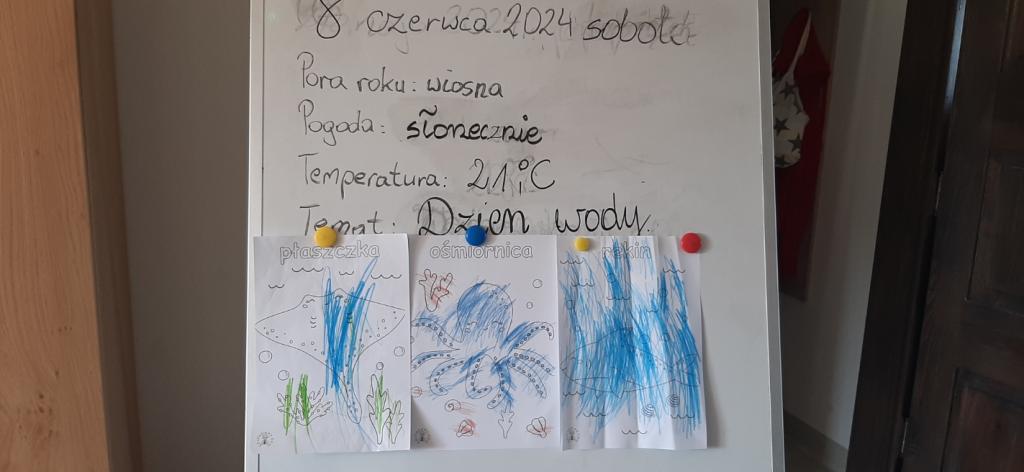 8 czerwca 2024 sobota
Pora roku: wiosna
Pogoda: słonecznie
Temperatura: 21°C
Temat: Dzień wody
płaszczka ośmiornica rekin